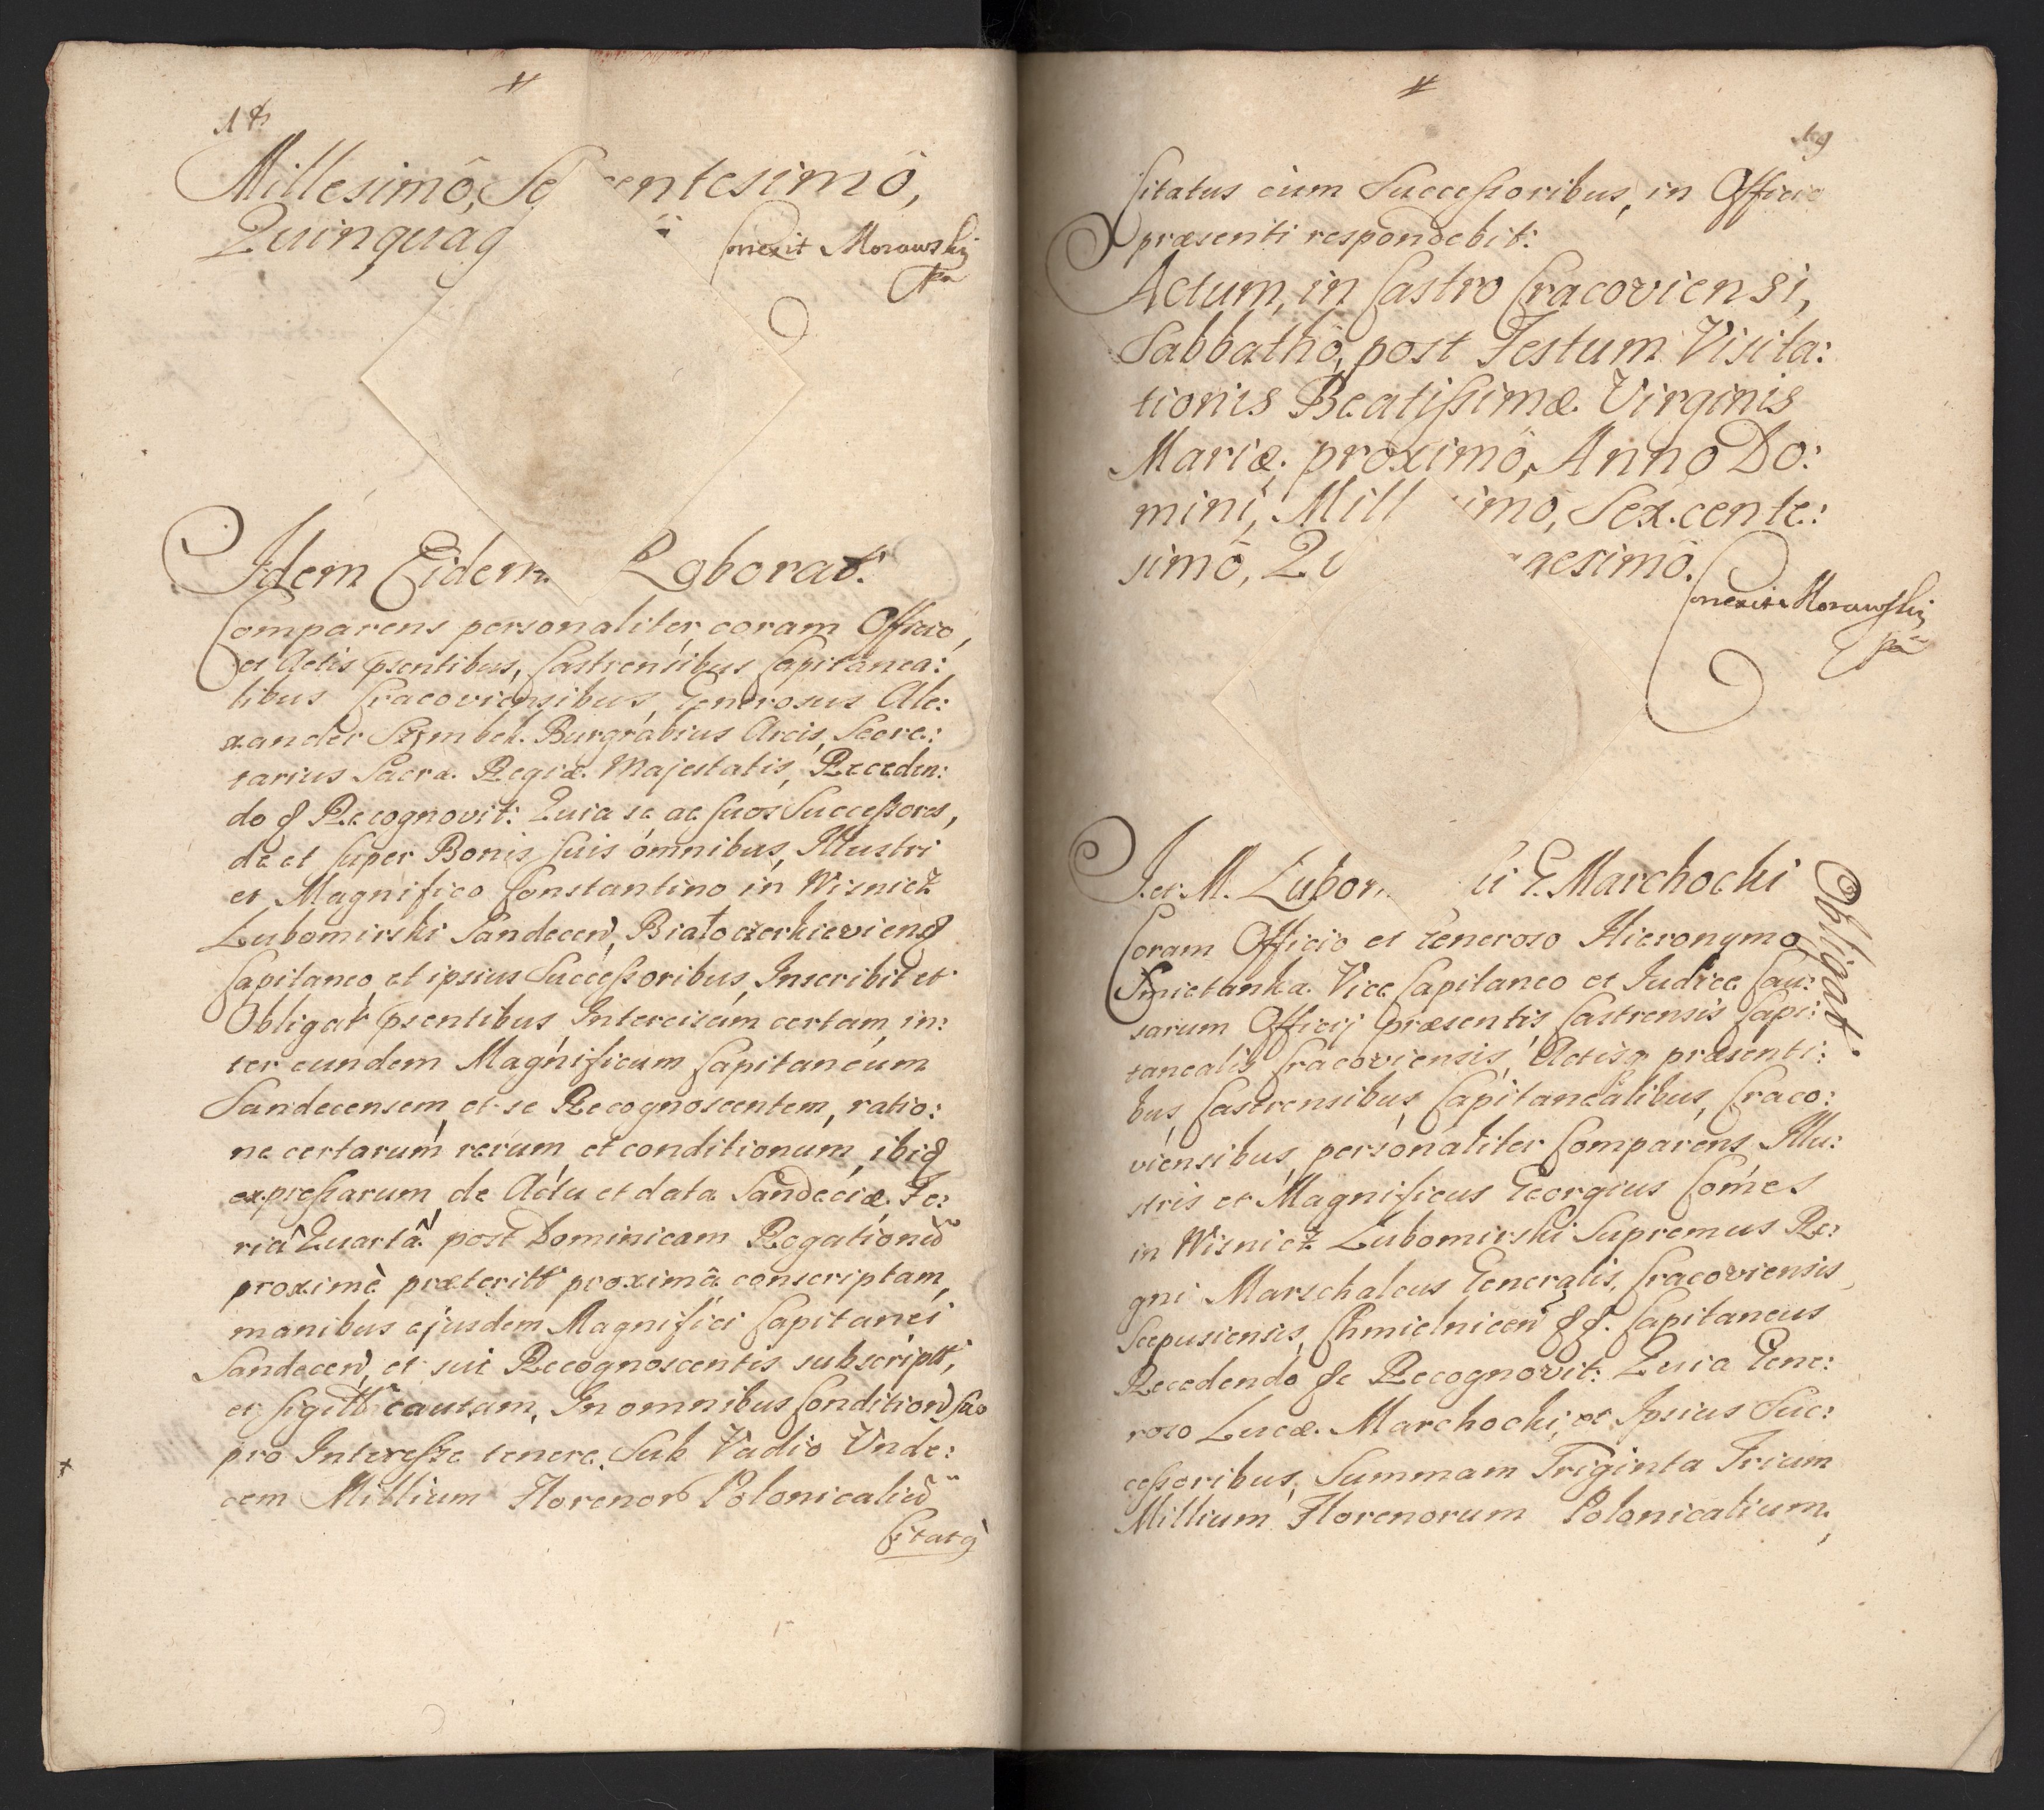 18
Millesimô, Se entesimô,
Quinquag
Conexit Morawski
Idem Eidem Roborat:
Comparens personaliter, coram Officio,
et Actis psentibus, Castrensibus Capitanea:
libus Cracoviensibus, Generosus Ale:
xander Szembek Burgrabius Arcis, Secre:
tarius Sacræ Regiæ Majestatis, Receden:
do & Recognovit: Quia se ac suos Successores,
de et super Bonis suis omnibus, Illustri
et Magnifico Constantino in Wisnicz
Lubomirski Sandecen, Białocerkieviens
Capitaneo, et ipsius Successoribus, Inscribit et
Obligat psentibus Intercisam certam, in:
ter eundem Magnificum Capitaneum
Sandecensem, et se Recognoscentem, ratio:
ne certarum rerum et conditionum, ibid
expressarum, de Actu et data Sandeciæ Fe:
riâ Quartâ post Dominicam Rogationu
proximè præterit proximâ conscriptam,
manibus ejusdem Magnifici Capitanei
Sandecen, et sui Recognoscentis subscript,
et sigill cautam, In omnibus Condition suo
pro Interesse tenere. Sub Vadio Unde:
cem Millium Florenor Polonicaliu
Citatq
19
Citatus cum Successoribus, in Officio
præsenti respondebit:
Actum, in Castro Cracoviensi,
Sabbathô, post Festum Visita:
tionis Beatissimæ Virginis
Mariæ, proximô, Anno Do:
mini, Mill imô, Sex.cente:
simô, Qu agesimô.
Conexit Morawski
I. et M. Lubor ki G. Marchocki
Obligat.
Coram Officio et Generoso Hieronymo
Smietanka Vice Capitaneo et Iudice Cau:
sarum Officij præsentis, Castrensis Capi:
tanealis Cracoviensis, Actisq præsenti:
bus, Castrensibus, Capitanealibus, Craco:
viensibus, personaliter Comparens Illu:
stris et Magnificus Georgius Comes
in Wisnicz Lubomirski Supremus Re:
gni Marschalcus Generalis, Cracoviensis,
Scepusiensis, Chmielnicen && Capitaneus
Recedendo &c Recognovit: Quia Gene:
roso Lucæ Marchocki, et Ipsius Suc:
cessoribus, Summam Triginta Trium
Millium Florenorum Polonicalium,